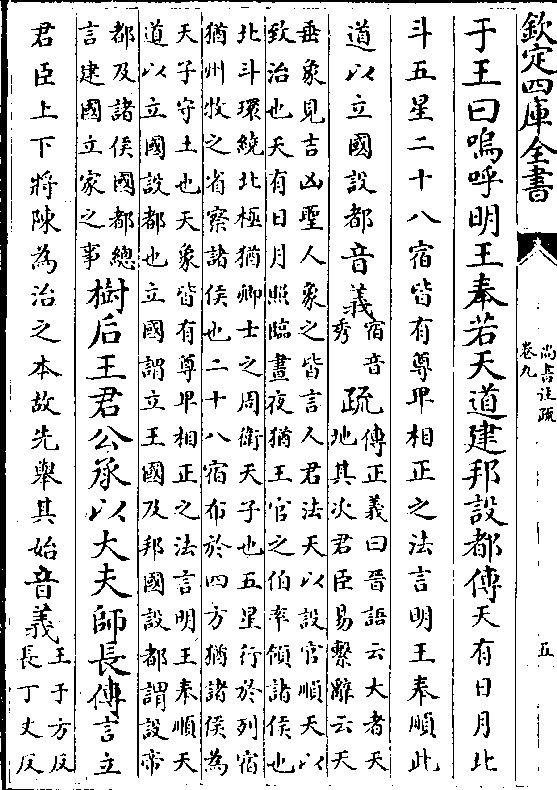 欽定四庫全書
尚書注疏
卷九
五
于王曰嗚呼明王奉若天道建邦設都傳天有日月北
斗五星二十八宿皆有尊卑相正之法言明王奉順此
道以立國設都音義
宿音
秀
疏
傳正義曰晉語云大者天
地其次君臣易繫辭云天
垂象見吉凶聖人象之皆言人君法天以設官順天以
致治也天有日月照臨晝夜猶王官之伯率領諸侯也
北斗環繞北極猶卿士之周衛天子也五星行於列宿
猶州牧之省察諸侯也二十八宿布於四方猶諸侯為
天子守土也天象皆有尊卑相正之法言明王奉順天
道以立國設都也立國謂立王國及邦國設都謂設帝
都及諸侯國都總
言建國立家之事
樹后王君公承以大夫師長傳言立
君臣上下將陳為治之本故先舉其始音義
王于方反
長丁丈反